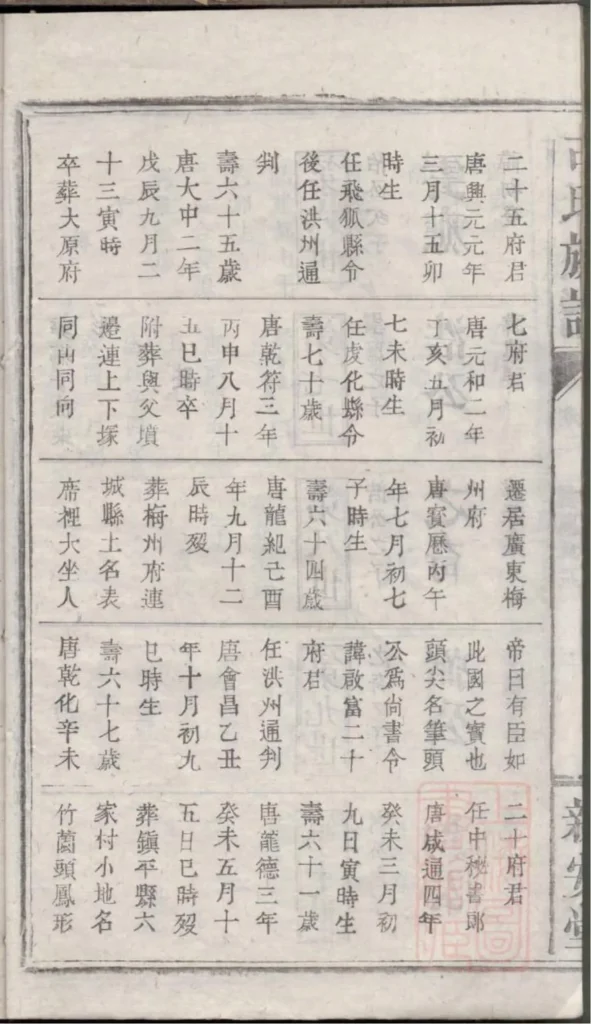 二十五府君
唐興元元年
三月十五卯
時生
任飛狐縣令
後任洪州通
判
壽六十五歲
唐大中二年
戊辰九月二
十三寅時
卒葬大原府
七府君
唐元和二年
丁亥五月初
七未時生
任虔化縣令
壽七十歲
唐乾符三年
丙申八月十
五巳時卒
附葬與父墳
邉連上下塚
同山同向
遷居廣東梅
州府
唐寳歷丙午
年七月初七
子時生
壽六十四歲
唐龍紀己酉
年九月十二
辰時殁
葬梅州府連
城縣土名表
席裡大坐人
帝曰有臣如
此國之寶也
頭尖名筆頭
公爲尚書令
諱啟富二十
府君
任洪州通判
唐會昌乙丑
年十月初九
巳時生
壽六十七歲
唐乾化辛未
二十府君
任中秘書郎
唐咸通四年
癸未三月初
九日寅時生
壽六十一歲
唐龍德三年
癸未五月十
五日巳時殁
葬鎮平縣六
家付小地名
竹頭鳳形